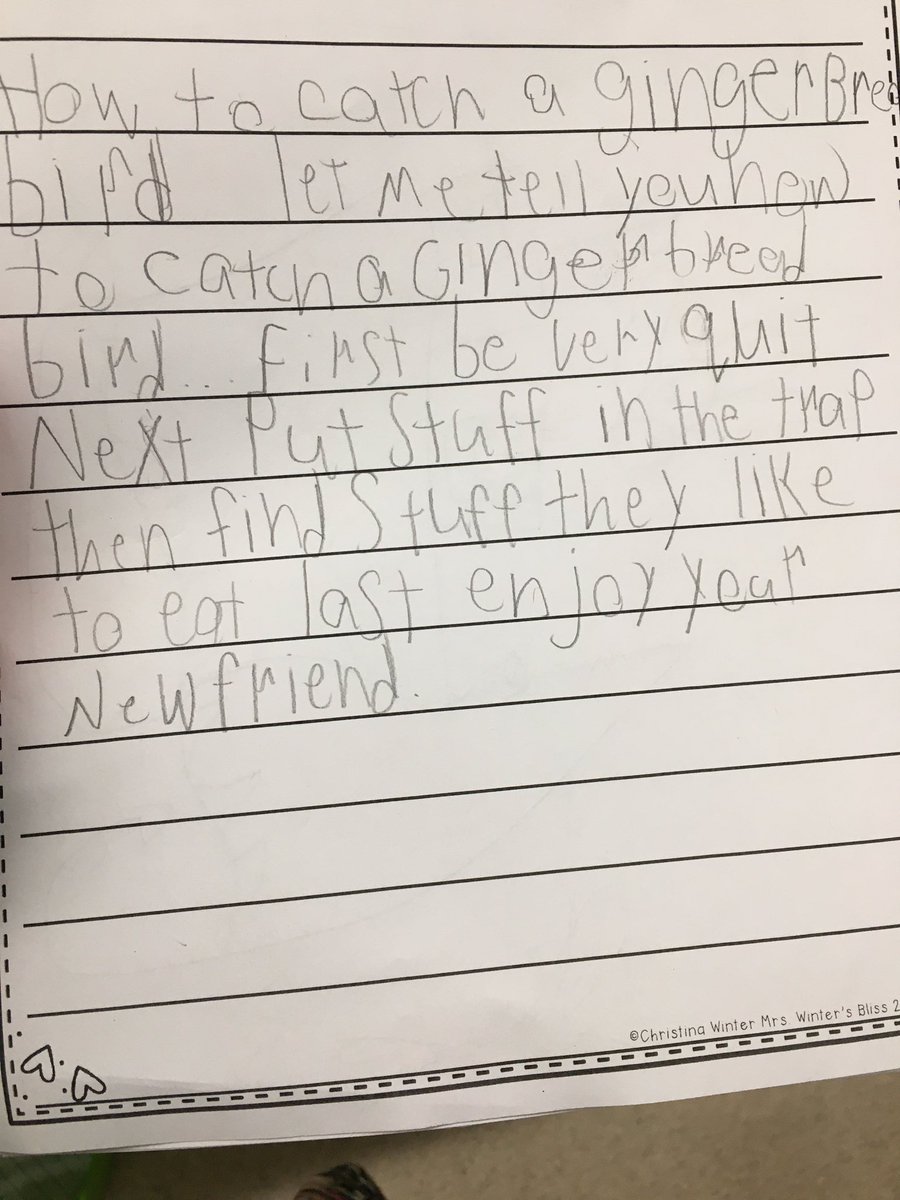 How to catch a gingerBred
bird let me tell you how
to catch a Gingerbread
bird... first be very quit
Next Put Stuff in the trap
then find Stuff they like
to eat last enjoy your
New friend.
©Christina Winter Mrs. Winter's Bliss 2